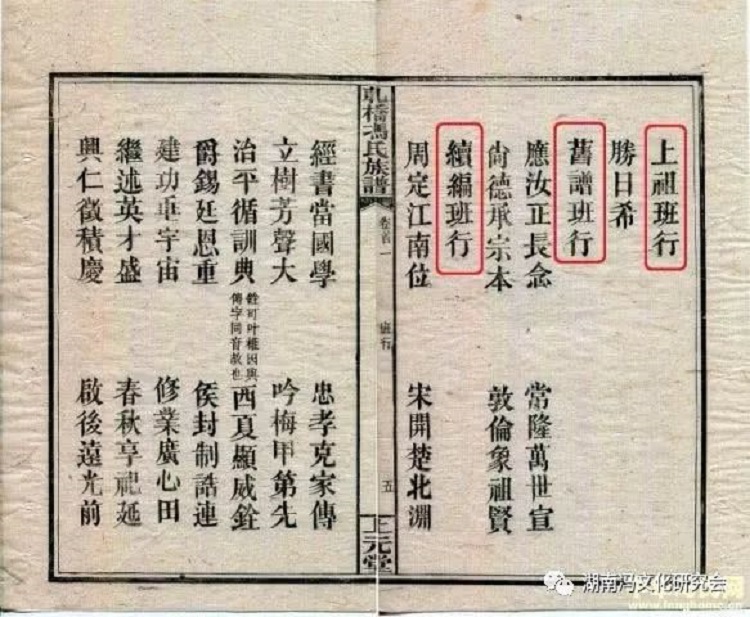 上祖班行
勝日希
舊譜班行
應汝正長念 常隆萬世宣
尙德承宗本 敦倫象祖賢
續編班行
周定江南位 宋開楚北淵
橋馮氏族譜 卷首一 班行 五 上元堂
經書當國學 忠孝克家傳
立樹芳聲大 吟梅甲第先
治平循訓典 西夏顯威銓
因與
傳字同音故也
爵錫廷恩重 侯封制誥連
建功垂宇宙 修業廣心田
繼述英才盛 春秋享祀延
興仁徵積慶 啟後遠光前
湖南冯文化研究会